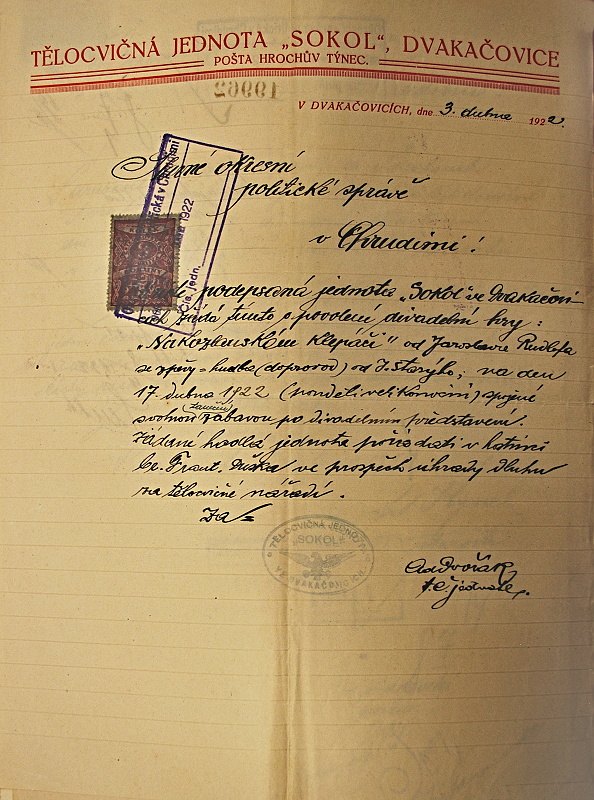 TĚLOCVIČNÁ JEDNOTA „SOKOL", DVAKAČOVICE
POŠTA HROCHŮV TÝNEC.
19962
V DVAKAČOVICÍCH, dne 3. dubna 1922.
Slavné okresní
politické správě
v Chrudimi!
podepsaná jednota „Sokol" ve Dvakačovi-
cích žádá tímto o povolení divadelní hry:
od Jaroslava Rudloffa
se zpěvy - hudba (doprovod) od J. Starýho; na den
17 dubna 1922 (pondělí velikonoční) spojené
s volnou taneční zábavou po divadelním představení.
Žádané hodlá jednota pořádati v hostinci
br. Frant. Duška ve prospěch úhrady dluhu
na tělocvičné nářadí.
Za
TĚLOCVIČNÁ JEDNOTA
„SOKOL"
V DVAKAČOVICÍCH
Ad Dvořák
t. č. jednatel.